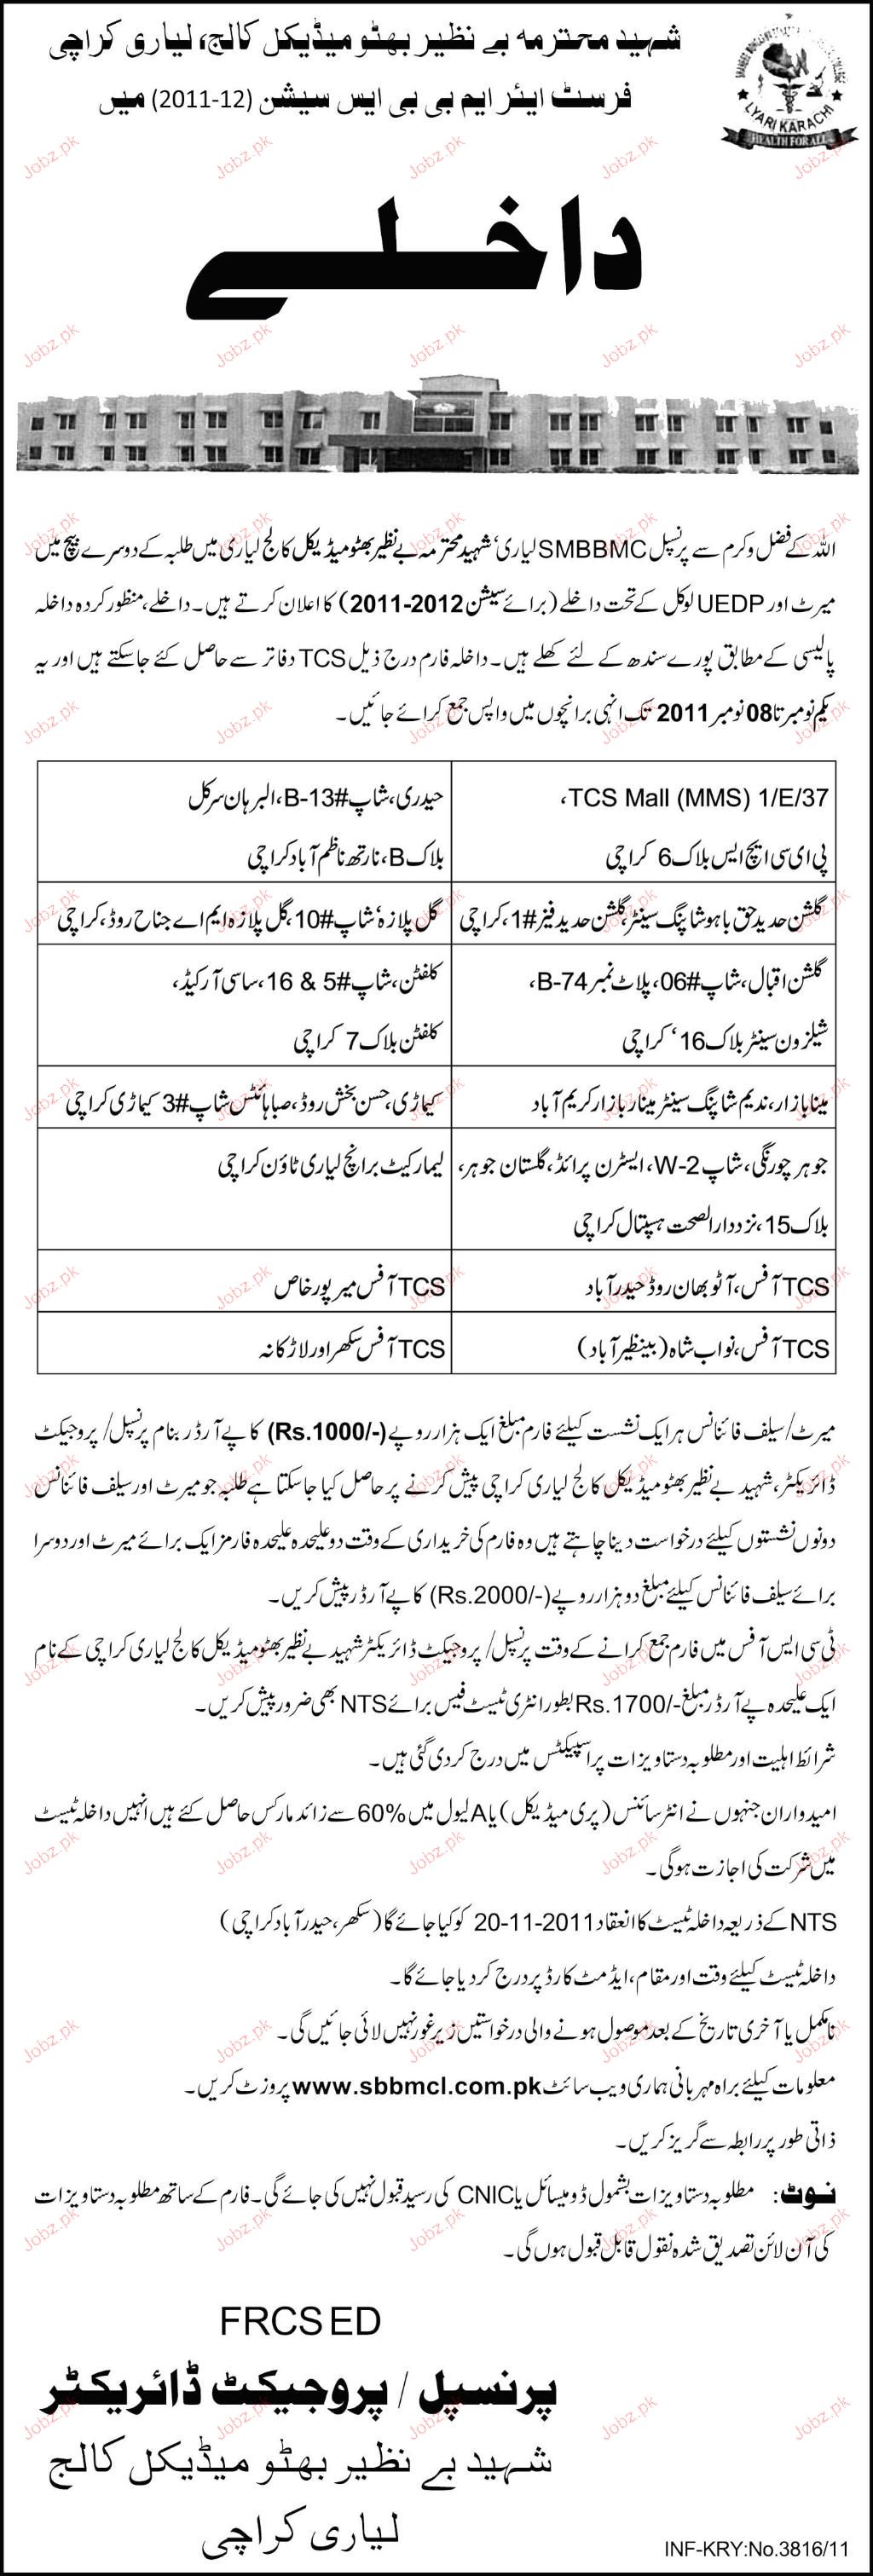 شہید محترمہ بے نظیر بھٹو میڈیکل کالج، لیاری کراچی
فرسٹ ایئر ایم بی بی ایس سیشن (2011-12) میں
LYARI KARACHI
HEALTH FOR ALL
داخلے
اللہ کے فضل وکرم سے پرنسپل SMBBMC لیاری، شہید محترمہ بے نظیر بھٹو میڈیکل کالج لیاری میں طلبہ کے دوسرے بیچ میں
میرٹ اور UEDP لوکل کے تحت داخلے (برائے سیشن 2012-2011) کا اعلان کرتے ہیں۔ داخلے، منظور کردہ داخلہ
پالیسی کے مطابق پورے سندھ کے لئے کھلے ہیں۔ داخلہ فارم درج ذیل TCS دفاتر سے حاصل کئے جاسکتے ہیں اور یہ
یکم نومبر تا 08 نومبر 2011 تک انہی برانچوں میں واپس جمع کرائے جائیں۔
TCS Mall (MMS) 1/E/37،
پی ای سی ایچ ایس بلاک 6 کراچی
حیدری، شاپ #B-13، البرہان سرکل
بلاک B، نارتھ ناظم آباد کراچی
گلشن حدید حق باہو شاپنگ سینٹر، گلشن حدید فیز #1، کراچی
گل پلازہ، شاپ #10، گل پلازہ ایم اے جناح روڈ، کراچی
گلشن اقبال، شاپ #06، پلاٹ نمبر B-74،
شیلزون سینٹر بلاک 16، کراچی
کلفٹن، شاپ #5 & 16، ساسی آرکیڈ،
کلفٹن بلاک 7 کراچی
مینا بازار، ندیم شاپنگ سینٹر مینار بازار کریم آباد
کیماڑی، حسن بخش روڈ، صبا ہائٹس شاپ #3 کیماڑی کراچی
جوہر چورنگی، شاپ W-2، ایسٹرن پرائڈ، گلستان جوہر،
بلاک 15، نزد دارالصحت ہسپتال کراچی
لیمارکیٹ برانچ لیاری ٹاؤن کراچی
TCS آفس، آٹو بھان روڈ حیدرآباد
TCS آفس میرپورخاص
TCS آفس، نواب شاہ (بینظیر آباد)
TCS آفس سکھر اور لاڑکانہ
میرٹ/سیلف فائنانس ہر ایک نشست کیلئے فارم مبلغ ایک ہزار روپے (Rs.1000/-) کا پے آرڈر بنام پرنسپل/ پروجیکٹ
ڈائریکٹر، شہید بے نظیر بھٹو میڈیکل کالج لیاری کراچی پیش کرنے پر حاصل کیا جاسکتا ہے طلبہ جو میرٹ اور سیلف فائنانس
دونوں نشستوں کیلئے درخواست دینا چاہتے ہیں وہ فارم کی خریداری کے وقت دو علیحدہ علیحدہ فارمز ایک برائے میرٹ اور دوسرا
برائے سیلف فائنانس کیلئے مبلغ دو ہزار روپے (Rs.2000/-) کا پے آرڈر پیش کریں۔
ٹی سی ایس آفس میں فارم جمع کرانے کے وقت پرنسپل/ پروجیکٹ ڈائریکٹر شہید بے نظیر بھٹو میڈیکل کالج لیاری کراچی کے نام
ایک علیحدہ پے آرڈر مبلغ Rs.1700/- بطور انٹری ٹیسٹ فیس برائے NTS بھی ضرور پیش کریں۔
شرائط اہلیت اور مطلوبہ دستاویزات پراسپیکٹس میں درج کردی گئی ہیں۔
امیدواران جنہوں نے انٹر سائنس (پری میڈیکل) یا A لیول میں 60% سے زائد مارکس حاصل کئے ہیں انہیں داخلہ ٹیسٹ
میں شرکت کی اجازت ہوگی۔
NTS کے ذریعہ داخلہ ٹیسٹ کا انعقاد 20-11-2011 کو کیا جائے گا (سکھر، حیدرآباد کراچی)
داخلہ ٹیسٹ کیلئے وقت اور مقام، ایڈمٹ کارڈ پر درج کردیا جائے گا۔
نامکمل یا آخری تاریخ کے بعد موصول ہونے والی درخواستیں زیرغور نہیں لائی جائیں گی۔
معلومات کیلئے براہ مہربانی ہماری ویب سائٹ www.sbbmcl.com.pk پر وزٹ کریں۔
ذاتی طور پر رابطہ سے گریز کریں۔
نوٹ: مطلوبہ دستاویزات بشمول ڈومیسائل یا CNIC کی رسید قبول نہیں کی جائے گی۔ فارم کے ساتھ مطلوبہ دستاویزات
کی آن لائن تصدیق شدہ نقول قابل قبول ہوں گی۔
FRCS ED
پرنسپل / پروجیکٹ ڈائریکٹر
شہید بے نظیر بھٹو میڈیکل کالج
لیاری کراچی
INF-KRY:No.3816/11
Jobz.pk